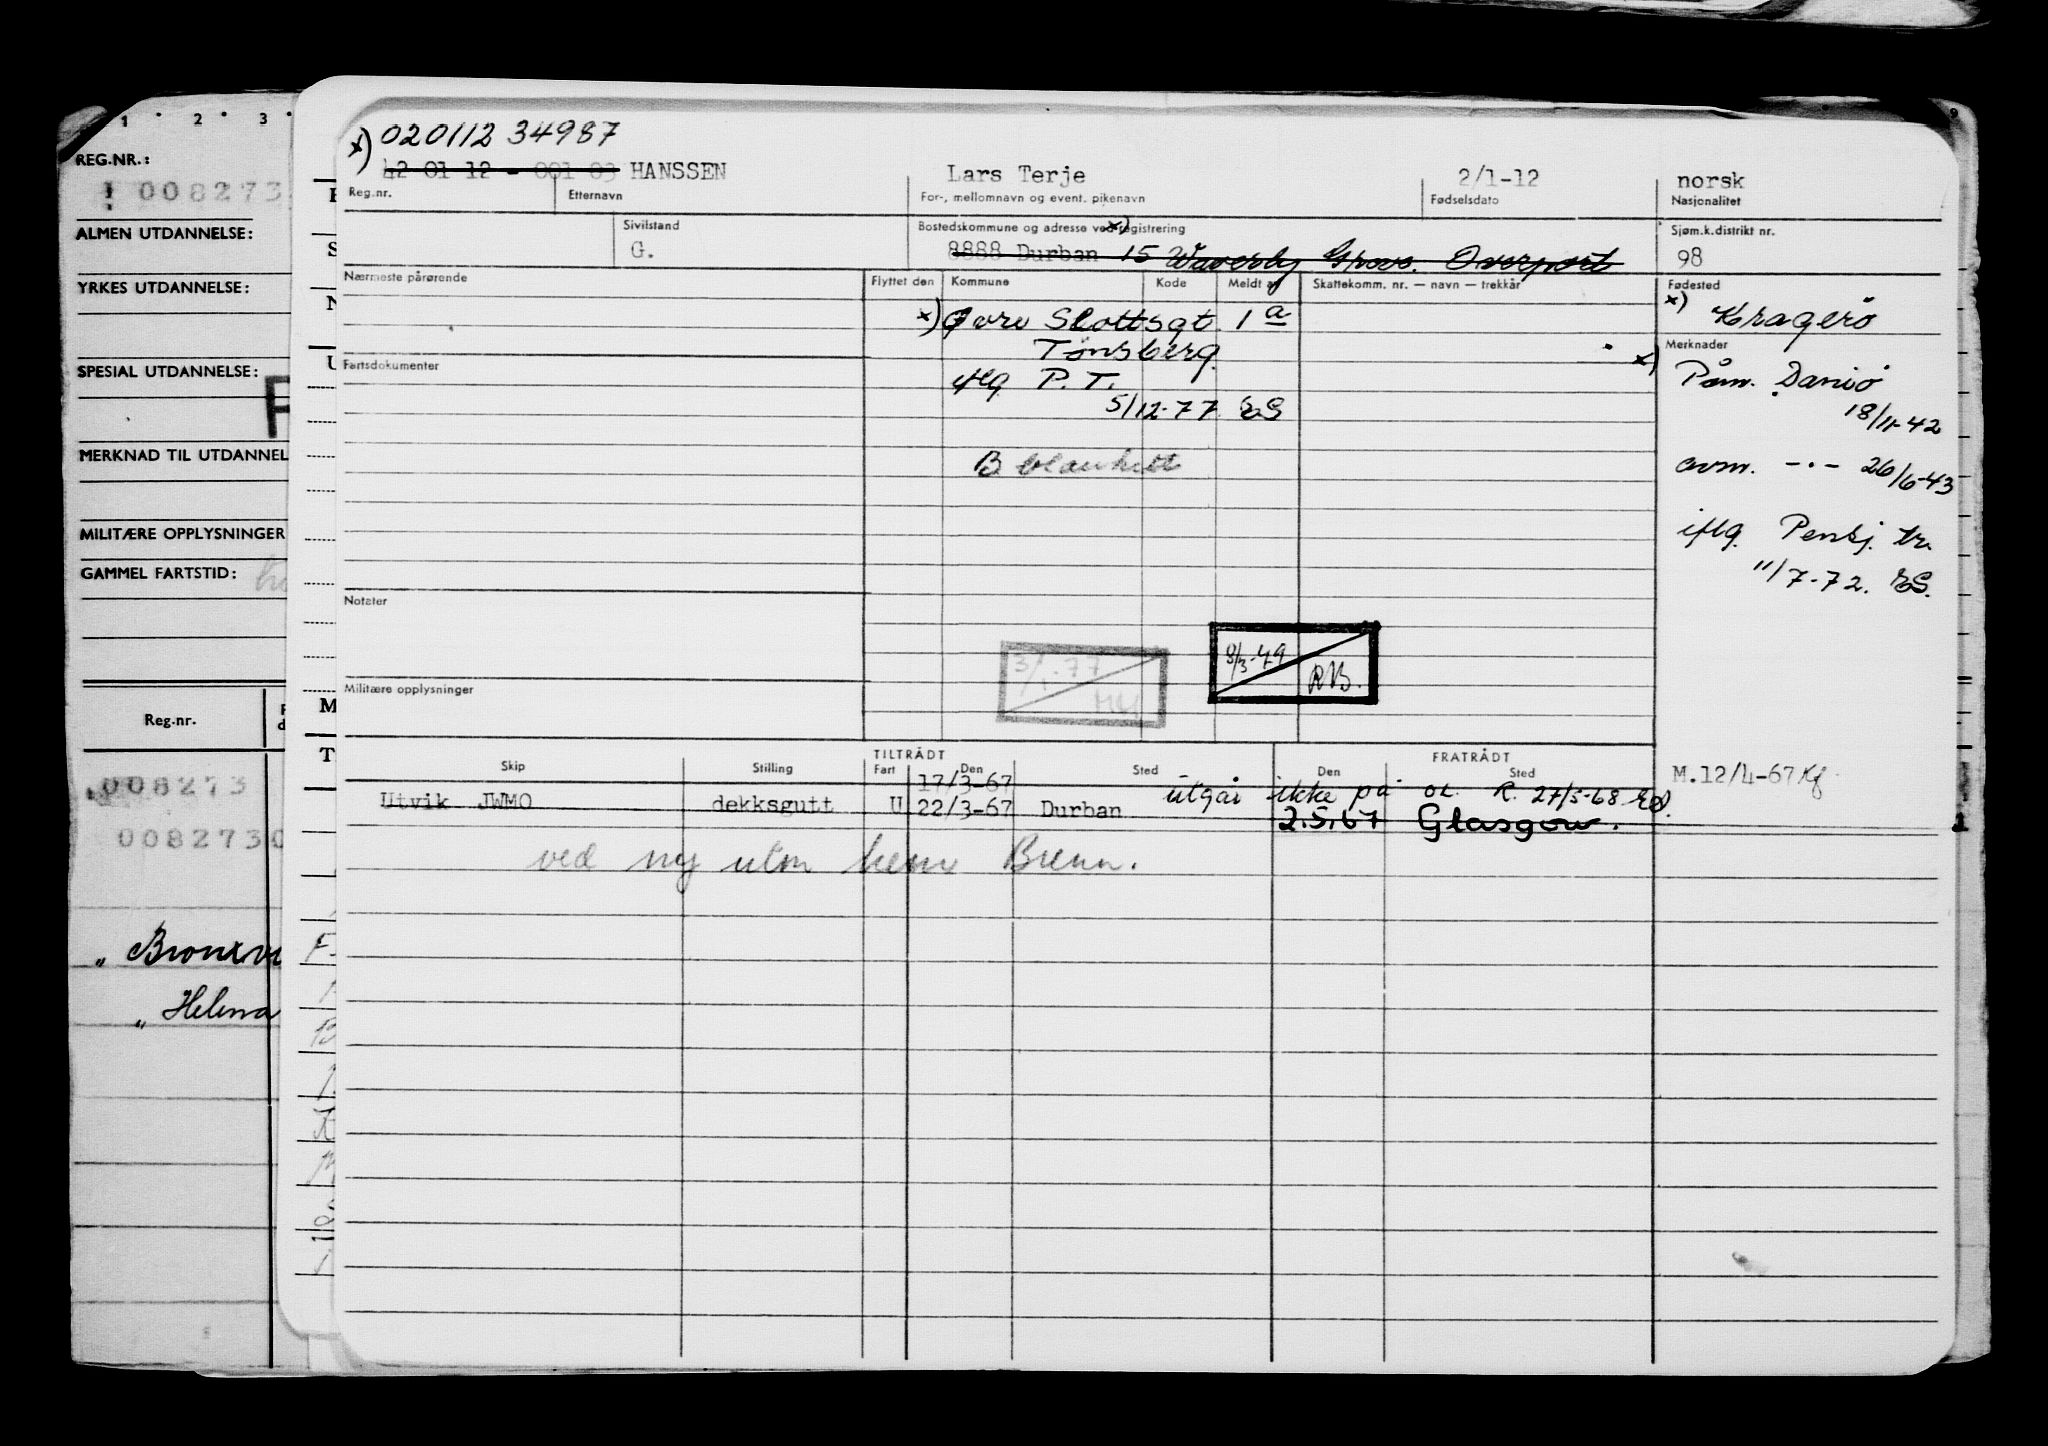 1 2 3
REG.NR.:
008273
ALMEN UTDANNELSE:
YRKES UTDANNELSE:
SPESIAL UTDANNELSE:
MERKNAD TIL UTDANNEL
MILITÆRE OPPLYSNINGER
GAMMEL FARTSTID:
Reg.nr.
008273
0082730
" Bronxvi
" Helena
x) 020112 34987
42 01 12 - 001 03 HANSSEN Lars Terje 2/1-12 norsk
Reg.nr. Etternavn For-, mellomnavn og event. pikenavn Fødselsdato Nasjonalitet
Sivilstand Bostedskommune og adresse ved registrering Sjøm.k.distrikt nr.
G. 8888 Durban x) 15 Waverly Grove. Overport 98
Nærmeste pårørende Flyttet den Kommune Kode Meldt av Skattekomm. nr. — navn — trekkår Fødested
x) Øvre Slottsgt. 1 a x) Kragerö
Tønsberg. Merknader
Fartsdokumenter iflg P. T. x) Påm. Daniö
5/12-77 ES 18/11-42
B blankett avm. -"- 26/6-43
iflg. Pensj. tr.
11/7-72. ES.
Notater
3/1-77 8/3-49 RB.
Militære opplysninger
TILTRÅDT FRATRÅDT
Skip Stilling Fart Den Sted Den Sted M.12/4-67 Kf
17/3-67 utgår ikke på OL. R. 27/5-68 ES.
Utvik JWMO dekksgutt U 22/3-67 Durban 2.5.67 Glasgow.
ved ny utm henv Brenn.